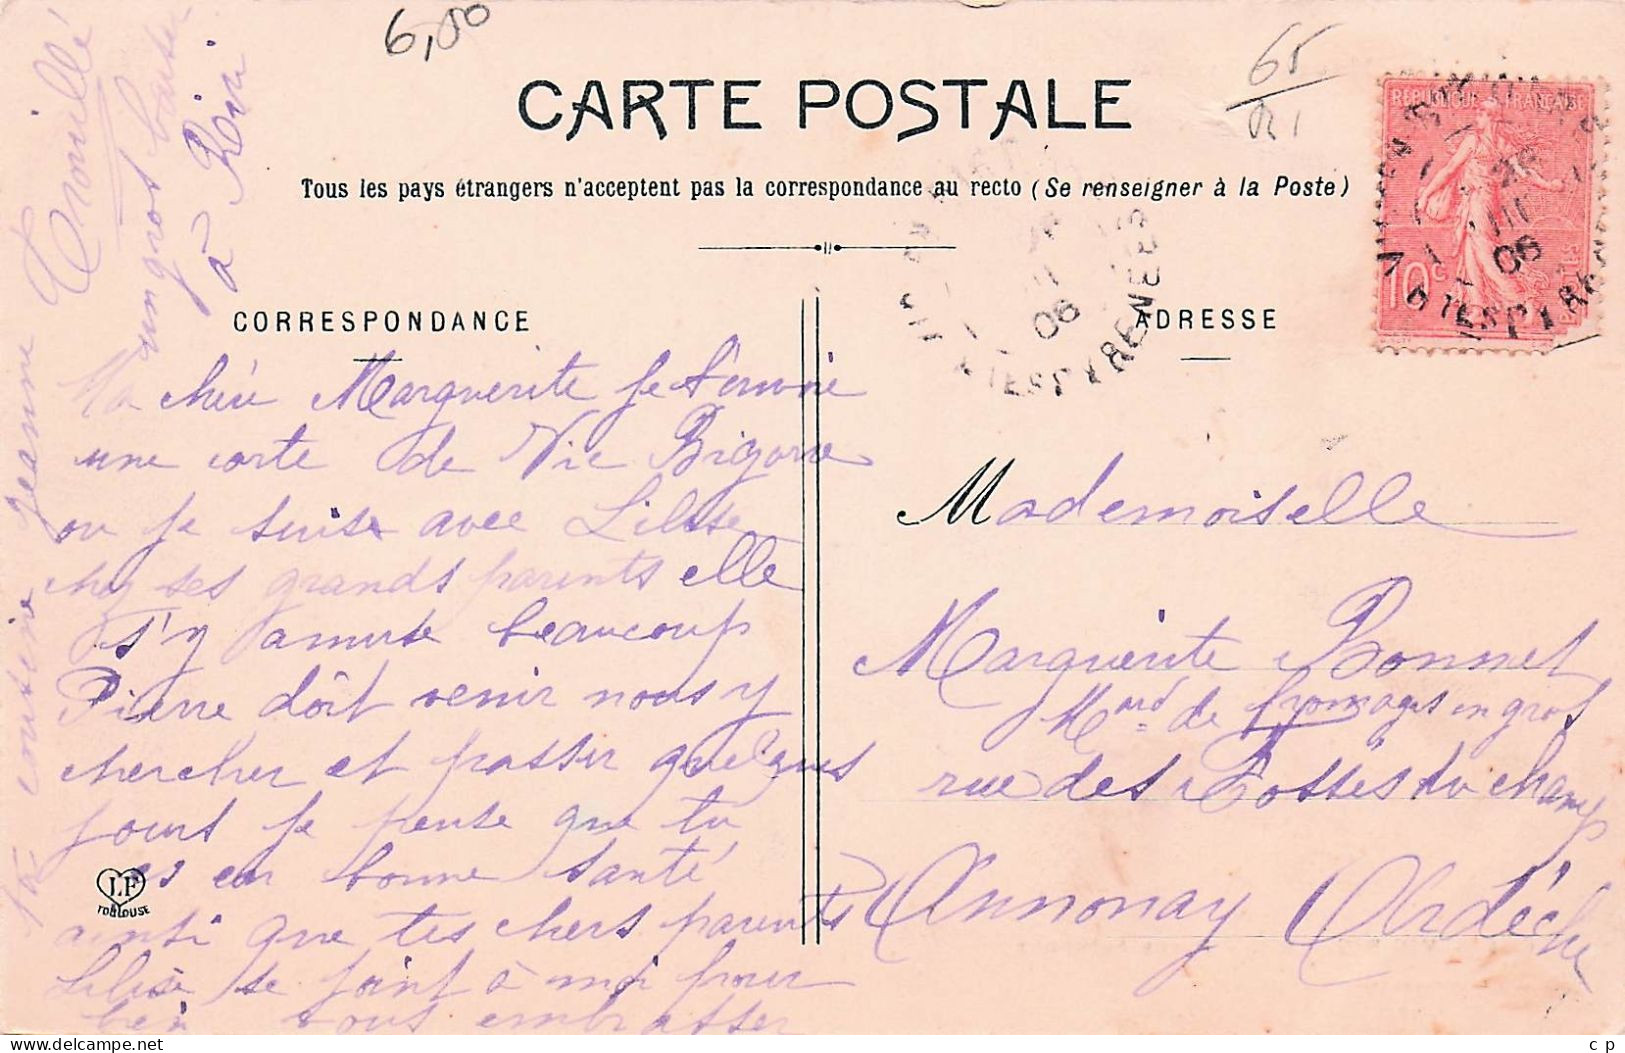 6,00
65
CARTE POSTALE
Tous les pays étrangers n'acceptent pas la correspondance au recto (Se renseigner à la Poste)
REPUBLIQUE FRANÇAISE
10c
06
06
CORRESPONDANCE
ADRESSE
Ma chère Marguerite je t'envoie
une carte de Vic Bigorre
ou je suis avec Lilise
chez ses grands parents elle
s'y amuse beaucoup
Pierre dôit venir nous y
chercher et passer quelques
jours je pense que tu
es en bonne santé
ainsi que tes chers parents
Lilise se joint à moi pour
bien vous embrasser
Ta cousine Jeanne
un gros baiser
à Riri
J.F
TOULOUSE
Mademoiselle
Marguerite Bonnet
Mard de fromages en gros
rue des Fossés du champ
Annonay Ardèche